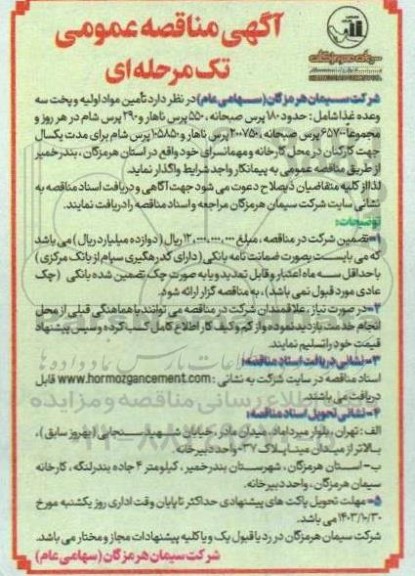 آگهی مناقصه عمومی
تک مرحله ای
شرکت سیمان هرمزگان (سهامی عام) در نظر دارد تأمین مواد اولیه و پخت سه
وعده غذا شامل : حدود ۱۸۰ پرس صبحانه ، ۵۵۰ پرس ناهار و ۲۹۰ پرس شام در هر روز و
مجموعا ۶۵۷۰۰ پرس صبحانه ، ۲۰۰۷۵۰ پرس ناهار و ۱۰۵۸۵۰ پرس شام برای مدت یکسال
جهت کارکنان در محل کارخانه و مهمانسرای خود واقع در استان هرمزگان ، بندر خمیر
از طریق مناقصه عمومی به پیمانکار واجد شرایط واگذار نماید.
لذا از کلیه متقاضیان ذیصلاح دعوت می شود جهت آگاهی و دریافت اسناد مناقصه به
نشانی سایت شرکت سیمان هرمزگان مراجعه و اسناد مناقصه را دریافت نمایند.
توضیحات:
۱- تضمین شرکت در مناقصه ، مبلغ ۱۲,۰۰۰,۰۰۰,۰۰۰ ریال (دوازده میلیارد ریال) می باشد
که می بایست بصورت ضمانت نامه بانکی (دارای کد رهگیری سپام از بانک مرکزی)
با حداقل سه ماه اعتبار و قابل تمدید و یا به صورت چک تضمین شده بانکی (چک
عادی مورد قبول نمی باشد) ، به مناقصه گزار ارائه شود.
۲- در صورت نیاز ، علاقمندان شرکت در مناقصه می توانند با هماهنگی قبلی از محل
انجام خدمت بازدید نموده و از کم و کیف کار اطلاع کامل کسب کرده و سپس پیشنهاد
قیمت خود را تسلیم نمایند.
۳- نشانی دریافت اسناد مناقصه:
اسناد مناقصه در سایت شرکت به نشانی : www.hormozgancement.com قابل
دریافت می باشند.
۴- نشانی تحویل اسناد مناقصه:
الف: تهران ، بلوار میرداماد ، میدان مادر ، خیابان شهید سنجابی (بهروز سابق) ،
بالاتر از میدان مینا پلاک ۳۷- واحد دبیرخانه.
ب- استان هرمزگان ، شهرستان بندر خمیر ، کیلومتر ۴ جاده بندر لنگه ، کارخانه
سیمان هرمزگان ، واحد دبیرخانه.
۵- مهلت تحویل پاکت های پیشنهادی حداکثر تا پایان وقت اداری روز یکشنبه مورخ
۱۴۰۳/۱۰/۳۰ می باشد.
شرکت سیمان هرمزگان در رد یا قبول یک و یا کلیه پیشنهادات مجاز و مختار می باشد.
شرکت سیمان هرمزگان (سهامی عام)